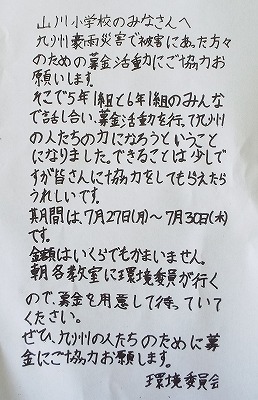 山川小学校のみなさんへ
九州豪雨災害で被害にあった方々
のための募金活動にご協力お
願いします。
そこで5年1組と6年1組のみんな
で話し合い、募金活動を行って九州
の人たちの力になろうということ
になりました。できることは少しで
すが皆さんに協力をしてもらえたら
うれしいです。
期間は、7月27日(月)~7月30日(木)
です。
金額はいくらでもかまいません。
朝各教室に環境委員が行く
ので、募金を用意して待っていて
ください。
ぜひ、九州の人たちのために募
金にご協力お願します。
環境委員会